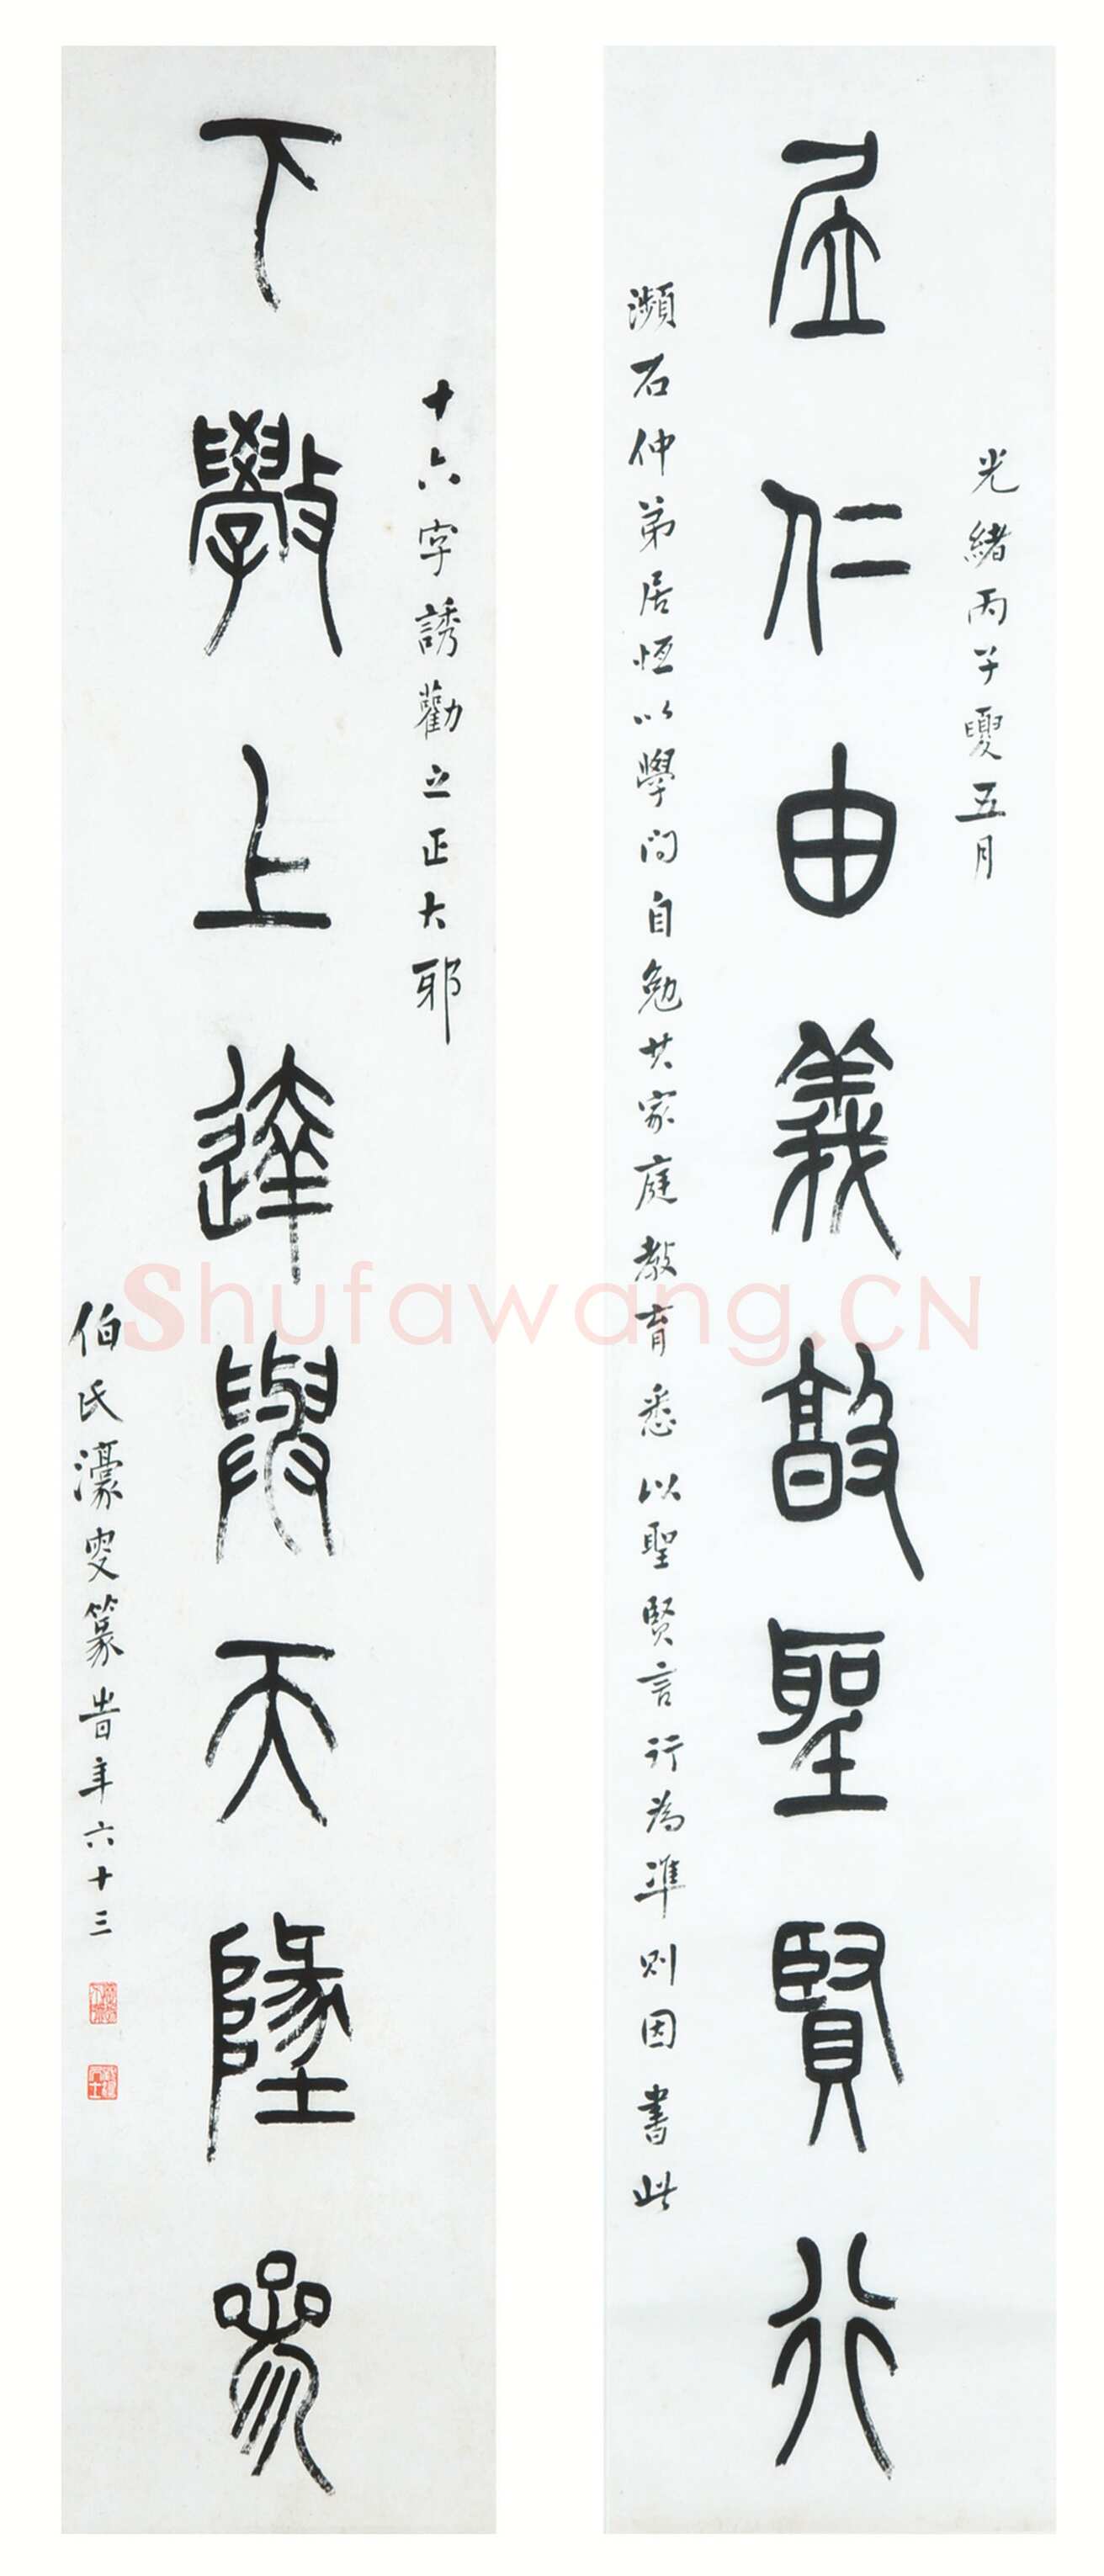 光緒丙子夏五月
居仁由義敦聖賢行
瀕石仲弟居恆以學問自勉其家庭教育悉以聖賢言行為準則因書此
十六字誘勸之正大耶
下斆上達與天墬參
伯氏濠叟篆旹年六十三
Shufawang.CN